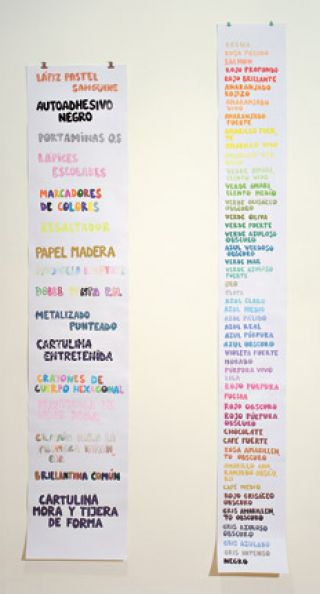 LÁPIZ PASTEL
SANGUINE
AUTOADHESIVO
NEGRO
PORTAMINAS 0.5
LÁPICES
ESCOLARES
MARCADORES
DE COLORES
RESALTADOR
PAPEL MADERA
METALIZADO
PUNTEADO
CARTULINA
ENTRETENIDA
CRAYONES DE
CUERPO HEXAGONAL
BRILLANTINA COMÚN
CARTULINA
MORA Y TIJERA
DE FORMA
ROSA PÁLIDO
SALMÓN
ROJO PROFUNDO
ROJO BRILLANTE
ANARANJADO
ROJIZO
ANARANJADO
VIVO
ANARANJADO
FUERTE
AMARILLO FUER_
TE
AMARILLO VIVO
VERDE AMARI_
LLENTO VIVO
VERDE AMARI_
LLENTO MEDIO
VERDE GRISÁCEO
OBSCURO
VERDE OLIVA
VERDE FUERTE
VERDE AZULOSO
OBSCURO
AZUL VERDOSO
OBSCURO
VERDE MAR
VERDE AZULOSO
FUERTE
ORO
PLATA
AZUL CLARO
AZUL MEDIO
AZUL PÁLIDO
AZUL REAL
AZUL PÚRPURA
AZUL OBSCURO
VIOLETA FUERTE
MORADO
PÚRPURA VIVO
LILA
ROJO PÚRPURA
FUCSIA
ROJO OBSCURO
ROJO PÚRPURA
OBSCURO
CHOCOLATE
CAFÉ FUERTE
ROSA AMARILLEN_
TO OBSCURO
CAFÉ MEDIO
ROJO GRISÁCEO
OBSCURO
GRIS AMARILLEN_
TO OBSCURO
GRIS AZULOSO
OBSCURO
GRIS AZULADO
GRIS INTENSO
NEGRO